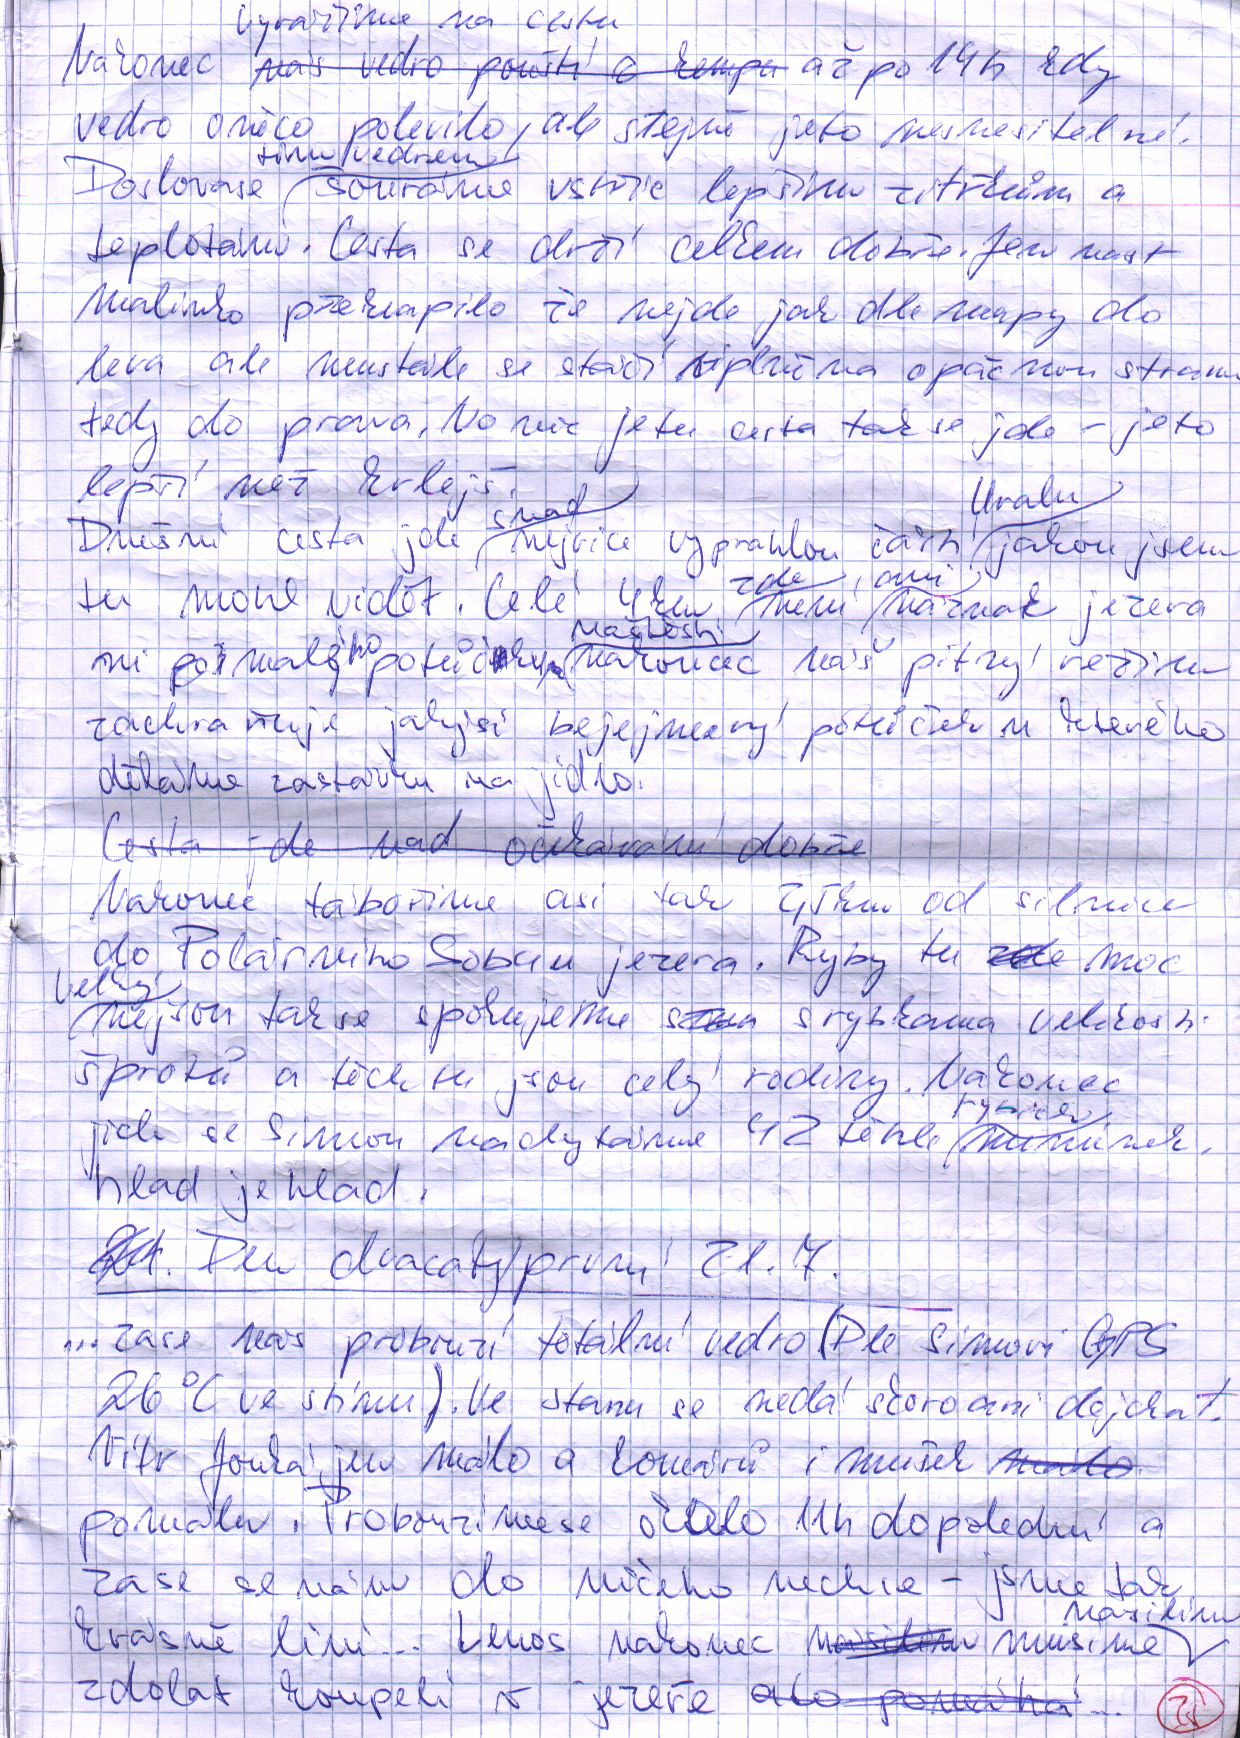 vyrážíme na cestu
Nakonec nás vedro pouští z kempu až po 14h kdy
vedro oněco polevilo, ale stejně jeto nesnesitelné.
tímvedrem
Doslovase souráme vstříc lepším zítřkům a
teplotám. Cesta se drží celkem dobře. Jen nast
malinko překvapilo že nejde jak dle mapy do
leva ale neustále se stáčí úplně na opačnou stranu
tedy do prava. No nic jetu cesta takse jde - jeto
lepší než kdejš.
snad Uralu
Dnešní cesta jde nejvíce vyprahlou částí jakou jsem
zde ani
tu mohl vidět. Celé 4km není náznak jezera
naštěstí
ni malýho nakonec náš pitný režim
zachraňuje jakýsi bejejmenný potůček u kterého
děláme zastávku na jídlo.
Cesta jde nad očekávání dobře
Nakonec táboříme asi tak od silnice
do Polárního Sobu u jezera. Ryby tu zde moc
velký
nejsou takse spokujeme srybkama velikosti
šprotů a těch tu jsou celý rodiny. Nakonec
rybiček
jich se Simou nachytáme 42 těhle miminek.
hlad je hlad.
Den dvacatýprvní 21.7.
...zase nás probouzí totální vedro (Dle Simovi GPS
26°C ve stínu). Ve stanu se nedá skoro ani dejchat.
Vítr fouká jen málo a komárů i mušek málo
pomálu. Probouzímese okolo 11h dopoledne a
zase se nám do ničeho nechce - jsme tak
násilím
krásně líní... Lenos nakonec násilím musíme
zdolat koupelí v jezeře ale pomáhá...